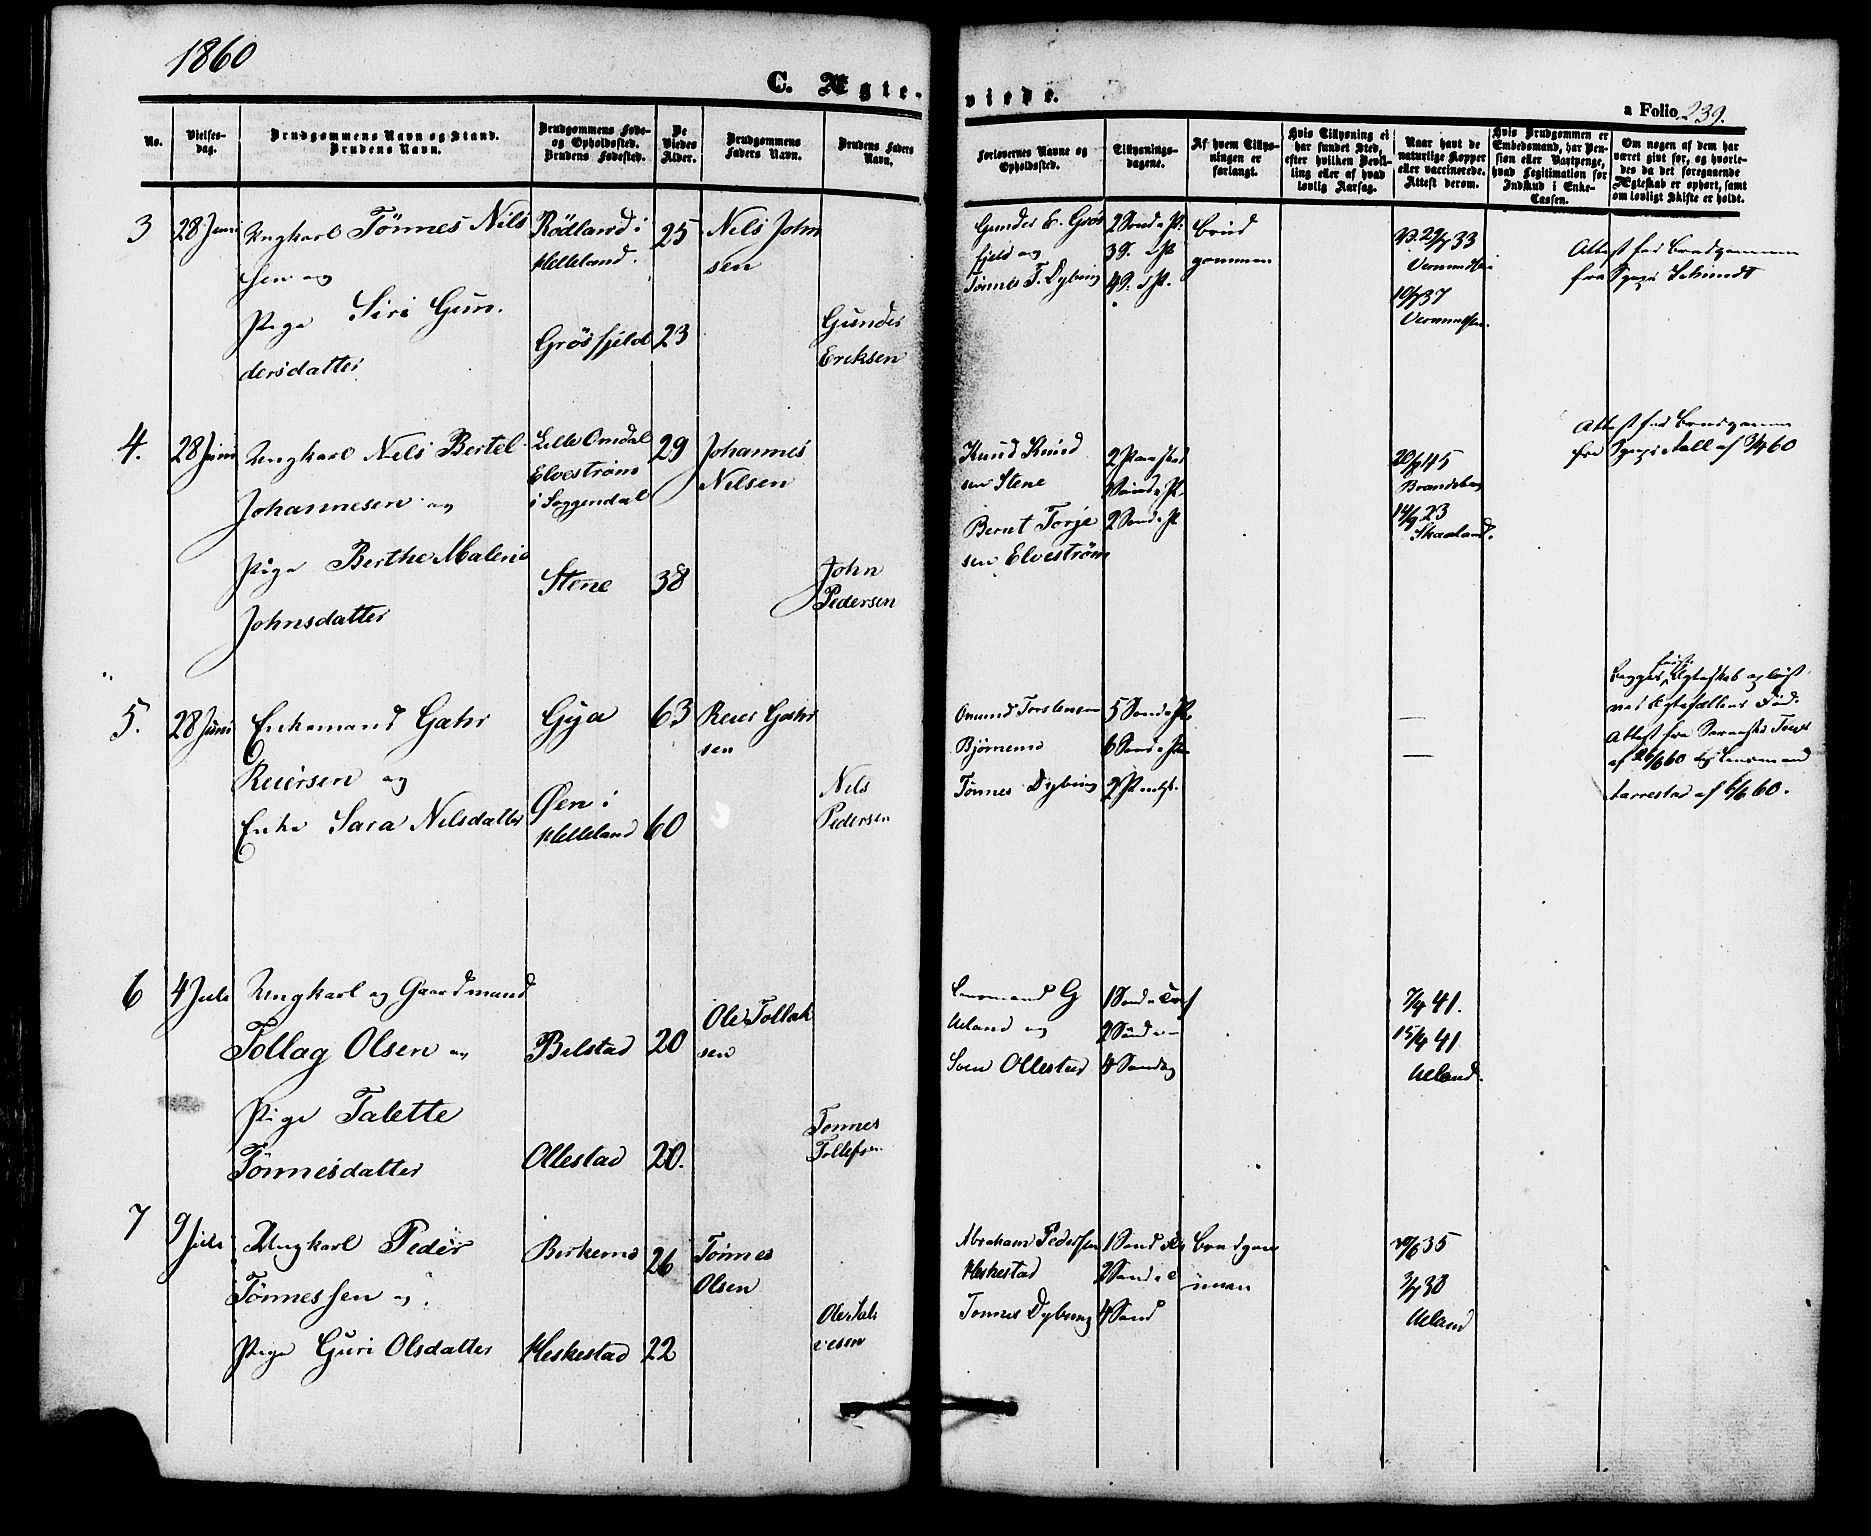 1860
C. Ægte-
viede.
a Folio 239.
No.
Vielses-
dag.
Brudgommens Navn og Stand.
Brudens Navn.
Brudgommens Føde-
og Opholdssted.
Brudens Fødested.
De
Viedes
Alder.
Brudgommens
Faders Navn.
Brudens Faders
Navn.
Forlovernes Navne og
Opholdssted.
Tillysnings-
dagene.
Af hvem Tillys-
ningen er
forlangt.
Hvis Tillysning ei
har fundet Sted,
efter hvilken Bevil-
ling eller af hvad
lovlig Aarsag.
Naar havt de
naturlige Kopper
eller vaccinerede.
Attest derom.
Hvis Brudgommen er
Embedsmand, har Pen-
sion eller Vartpenge,
hvad Legitimation for
Indskud i Enke-
Cassen.
Om nogen af dem har
været givt før, og hvorle-
des da det foregaaende
Ægteskab er ophørt, samt
om lovligt Skifte er holdt.
3
28 Juni
Ungkarl Tönnes Nils
sen og
Pige Siri Gun.
dersdatter
Rödland i
Helleland.
Grösfjeld
25
23
Nils John
sen
Gunder
Ericksen
Gunder E. Grös
fjeld og
Tönnes T. Dybing
2 Sond e. P.
3 S. e. P.
4 S. e. P.
Brud
gommen
29/7 33
10/7 37
Attest for Brudgommen
fra Schmidt
4.
28 Juni
Ungkarl Nils Bertel
Johannesen og
Pige Berthe Malene
Johnsdatter
Lille Omdal
Elvestrøm
i Soggendal
Stene
29
38
Johannes
Nilsen
John
Pedersen
Knud Knud
sen Stene
Bernt Torje
sen Elveström
2 Paaskes
2 Sond e. P
20/9 45
Brandsberg
14/9 23
Skaaland.
Attest for Brudgommen
fra Aall af 3/4 60
5.
28 Juni
Enkemand Gahr
Reiersen og
Enke Sara Nilsdatter
Gya
Øen i
Helleland
63
60
Reier Gahr
sen
Nils
Pedersen
Omund Torstensen
Björnemo
Tönnes Dybing
5 Sond e. P.
6 Sond e. P.
Begges første Ægteskab opløst
ved Ægtefællens Død.
Attest fra
af 26/6 60 og Lensmand
Aarrestad af 6/6 60.
6
4 Juli
Ungkarl og Gaardmand
Tollag Olsen og
Pige Talette
Tönnesdatter
Bilstad
Ollestad
20
20.
Ole Tollak
sen
Tonnes
Tollefsen
Lensmand G
Ueland og
Sven Ollestad
1 Sond e. Tref
2 Sond e -
4 Sondag
7/7 41.
15/7 41
Ueland.
7
9 Juli
Ungkarl Peder
Tönnessen og.
Pige Guri Olsdatter
Birkemo
Heskestad
26
22
Tönnes
Olsen
Ole Sale
vesen
Abraham Pedersen
Heskestad
Tonnes Dybing
1 Sond
2 Sond
4 Sond
Brudgom
men
20/6 35
3/7 38
Ueland